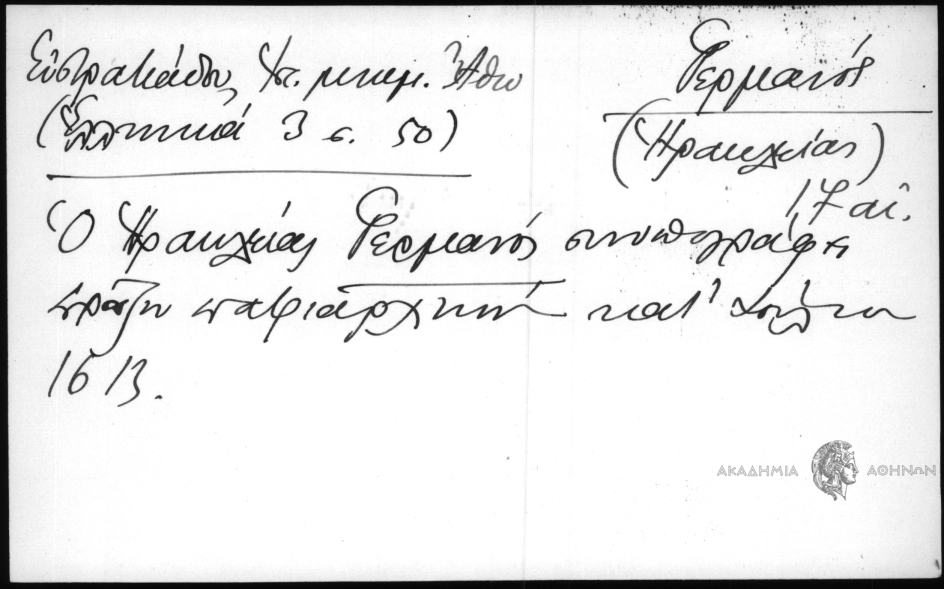 Εὐστρατιάδου, Ἱστ. μνημ. Ἄθω
(Ἑλληνικά 3 σ. 50)
Γερμανός
(Ἡρακλείας)
17 αἰ.
Ὁ Ἡρακλείας Γερμανός συνυπογράφει
πρᾶξιν πατριαρχικήν κατ'
1613.
ΑΚΑΔΗΜΙΑ ΑΘΗΝΩΝ